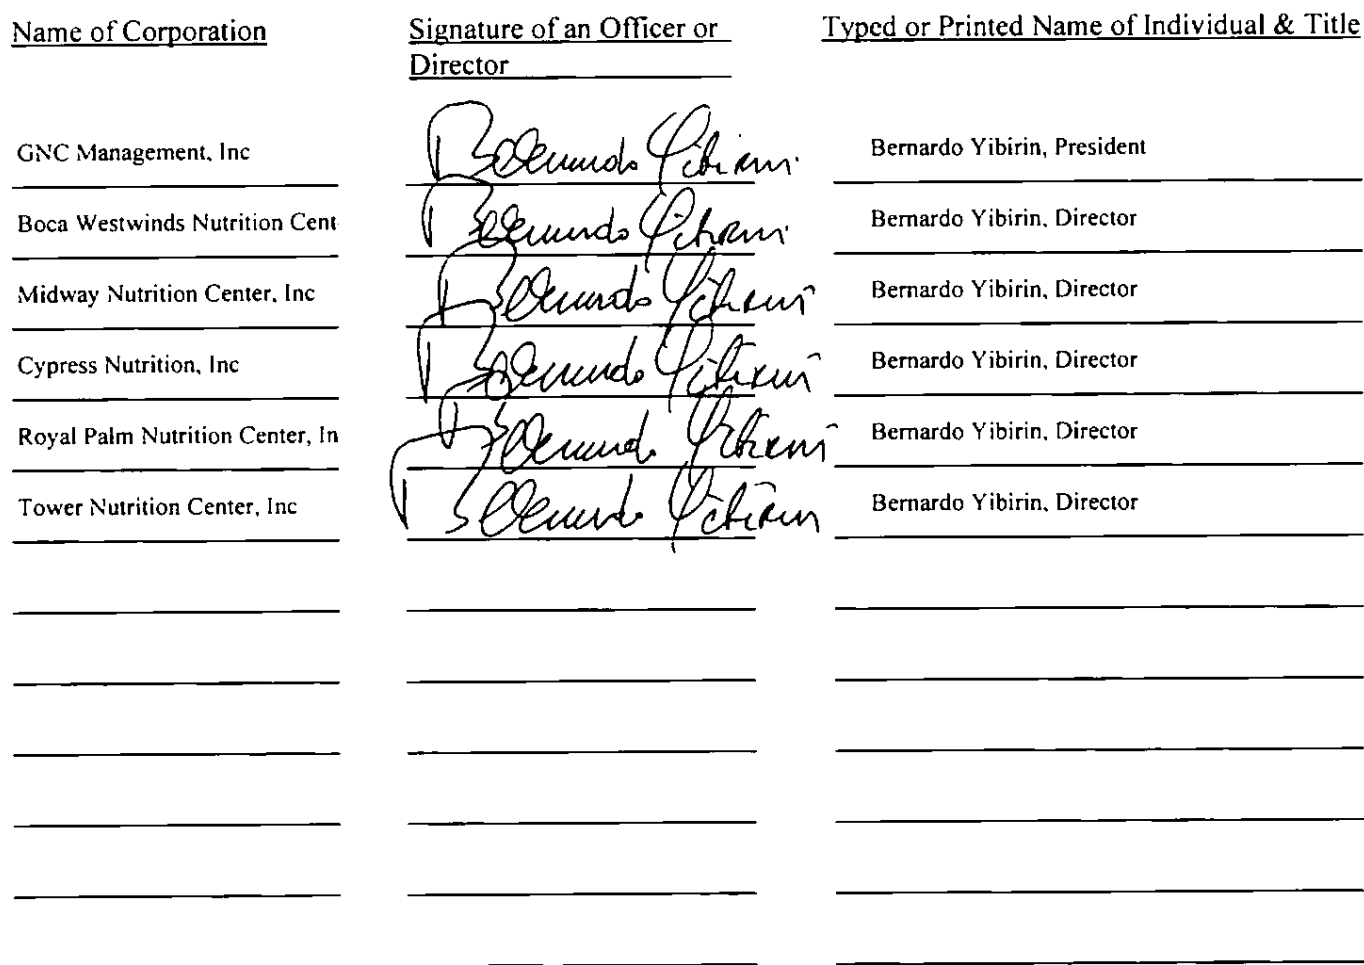 Name of Corporation Signature of an Officer or Typed or Printed Name of Individual & Title
Director
GNC Management, Inc Bernardo Yibirin Bernardo Yibirin, President
Boca Westwinds Nutrition Cent Bernardo Yibirin Bernardo Yibirin, Director
Midway Nutrition Center, Inc Bernardo Yibirin Bernardo Yibirin, Director
Cypress Nutrition, Inc Bernardo Yibirin Bernardo Yibirin, Director
Royal Palm Nutrition Center, In Bernardo Yibirin Bernardo Yibirin, Director
Tower Nutrition Center, Inc Bernardo Yibirin Bernardo Yibirin, Director